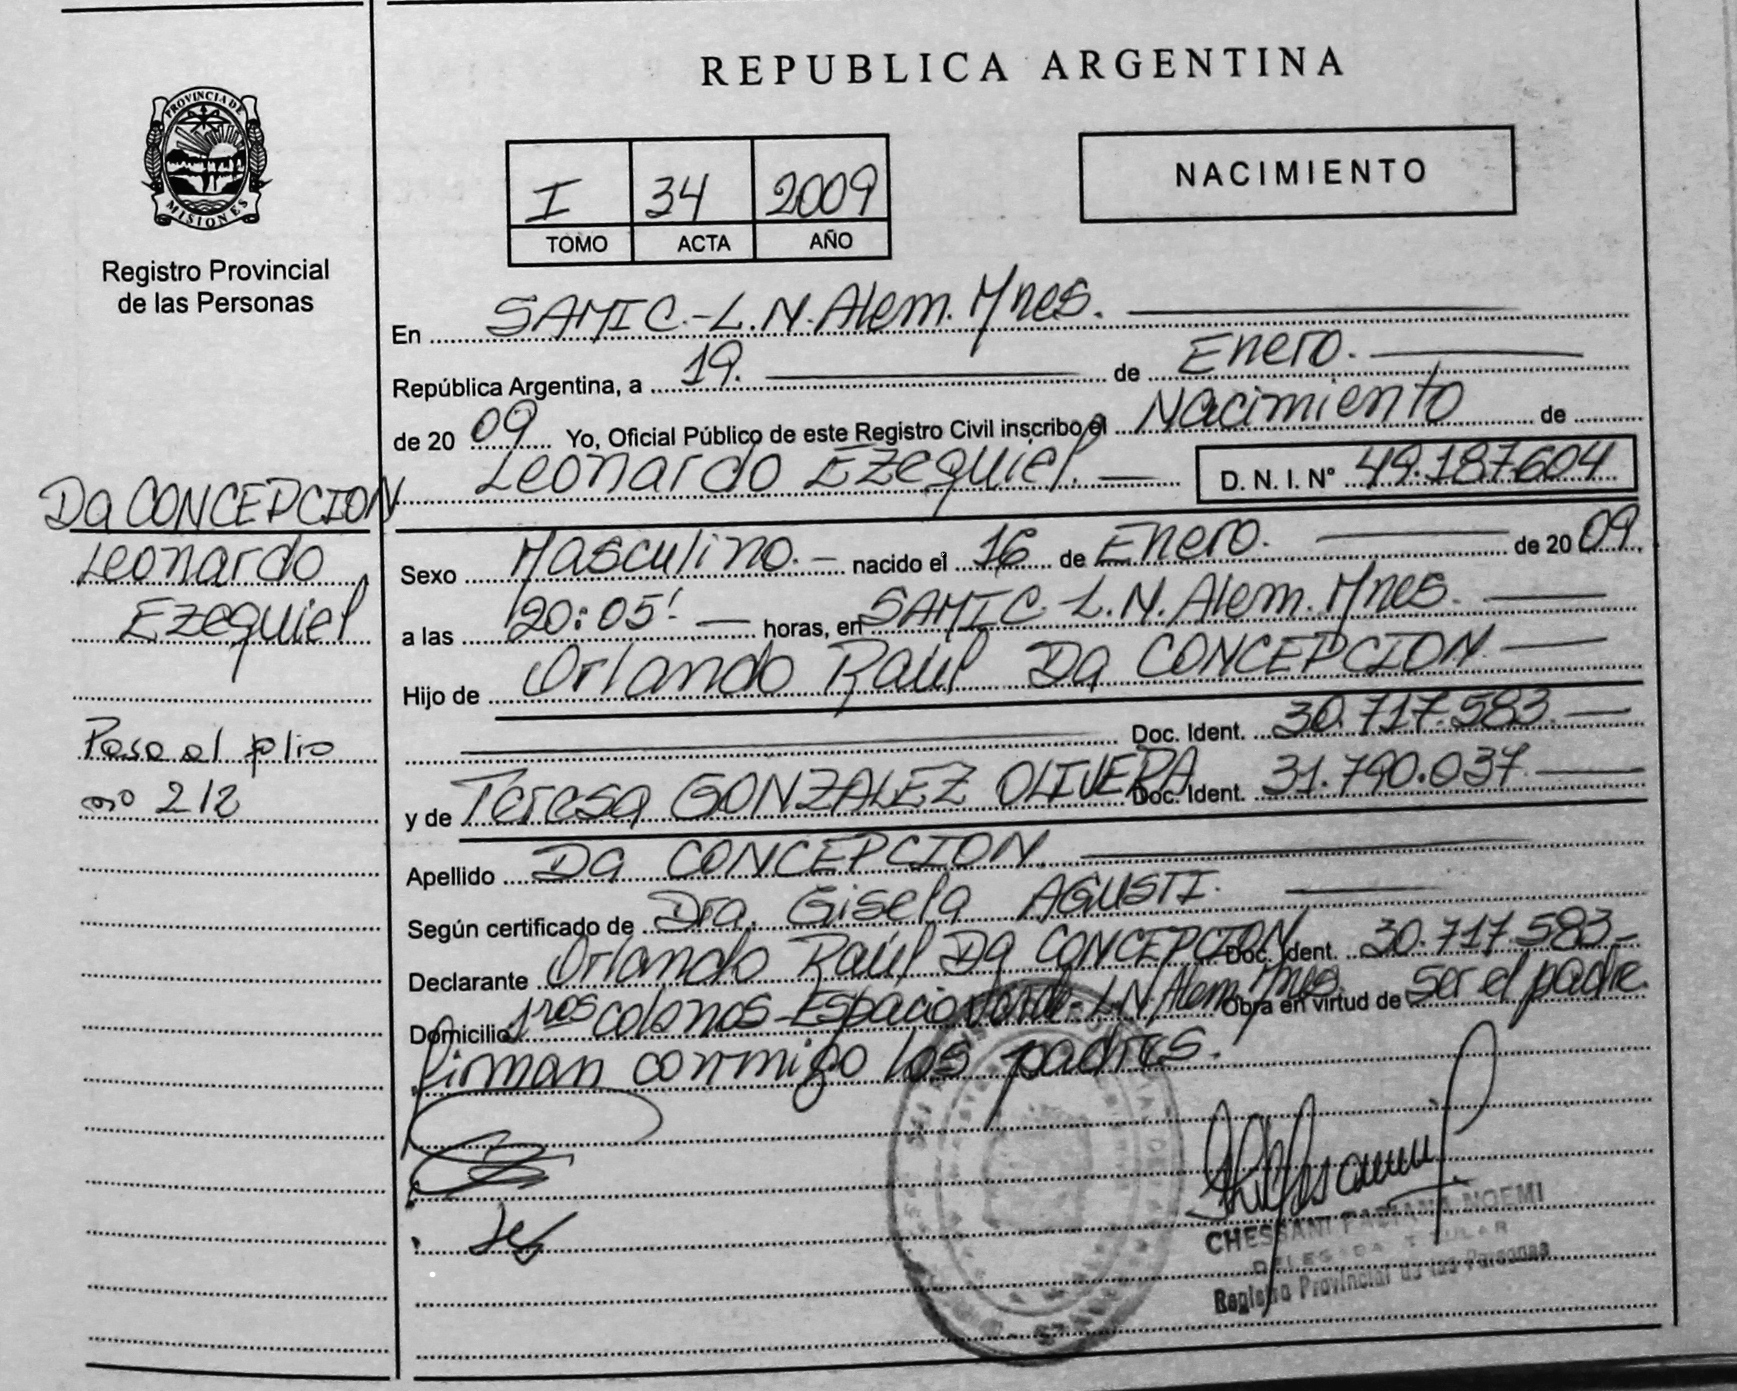 REPUBLICA ARGENTINA
PROVINCIA DE
MISIONES
Registro Provincial
de las Personas
I 34 2009
TOMO ACTA AÑO
NACIMIENTO
En SAMIC.-L.N.Alem. Mnes.
República Argentina, a 19. de Enero.
de 20 09 Yo, Oficial Público de este Registro Civil inscribo el Nacimiento de
Leonardo Ezequiel. D. N. I. N° 49.187.604
Da CONCEPCION
Leonardo
Ezequiel
Paso al folio
nº 212
Sexo Masculino. nacido el 16 de Enero. de 20 09.
a las 20:05' horas, en SAMIC-L.N. Alem. Mnes.
Hijo de Orlando Raúl Da CONCEPCION
Doc. Ident. 30.717.583.
y de Teresa GONZALEZ OLIVERA Doc. Ident. 31.790.037
Apellido Da CONCEPCION.
Según certificado de Dra. Gisela AGUSTI.
Declarante Orlando Raúl Da CONCEPCION Doc. Ident. 30.717.583
Domicilio 1ros colonos-Espacio Verde-L.N.Alem. Mnes. Obra en virtud de ser el padre.
firman conmigo los padres.
CHESSANI NOEMI
DELEGADA TITULAR
Registro Provincial de las Personas